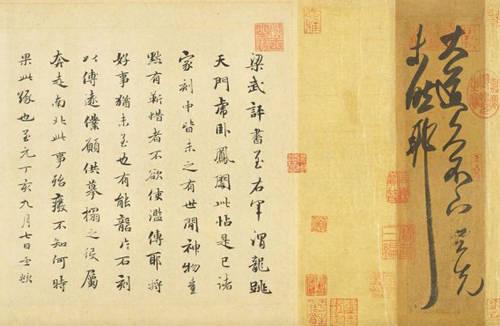 大道久不下与先
未然耶
梁武評書至右軍謂龍跳
天門虎卧鳳閣此帖是已諸
家刻中皆未之有世間神物豈
默有靳惜者不欲使濫傳耶將
好事猶未至也有能礱片石刻
以傳遠僕願供摹搨之役屬
奔走南北此事殆廢不知何時
果此緣也至元丁亥九月七日